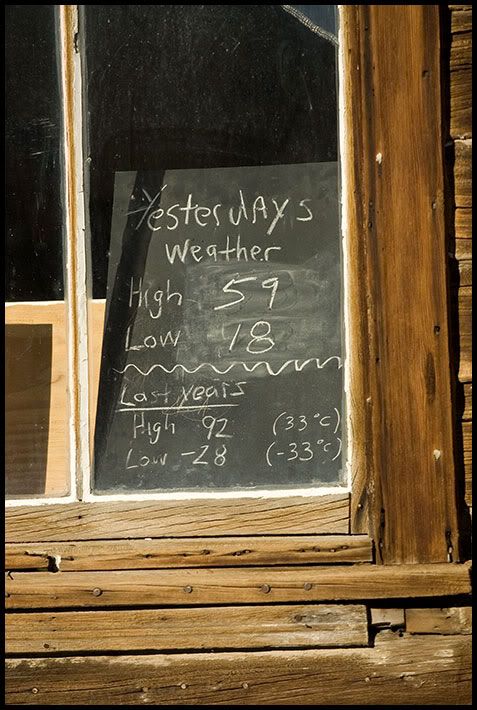 Yesterdays
Weather
High 59
Low 18
Last years
High 92 (33°C)
Low -28 (-33°C)